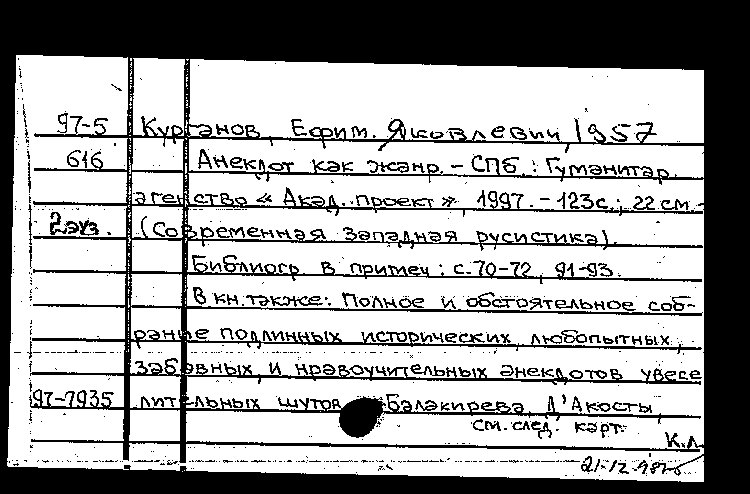 97-5 Курганов, Ефим. Яковлевич, 1957
616 Анекдот как жанр. - СПб.: Гуманитар.
агенство « Акад. проект », 1997. - 123с.; 22 см.-
2экз. (Современная западная русистика).
Библиогр в примеч: с.70-72, 91-93.
В кн. также: Полное и обстоятельное соб-
рание подлинных исторических, любопытных,
забавных, и нравоучительных анекдотов увесе
97-7935 лительных шутов Балакирева, Д'Акосты,
см. след. карт.
К.Л.
21-12